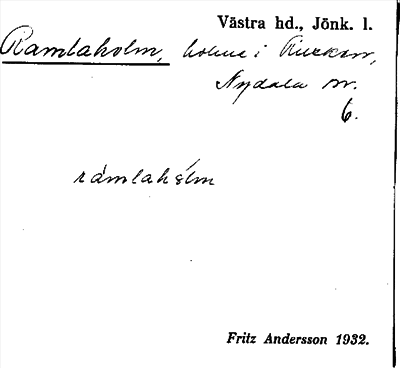 Västra hd., Jönk. l.
Ramlaholm, holme i Rusken,
Nydala sn.
6.
ràmlahólm
Fritz Andersson 1932.